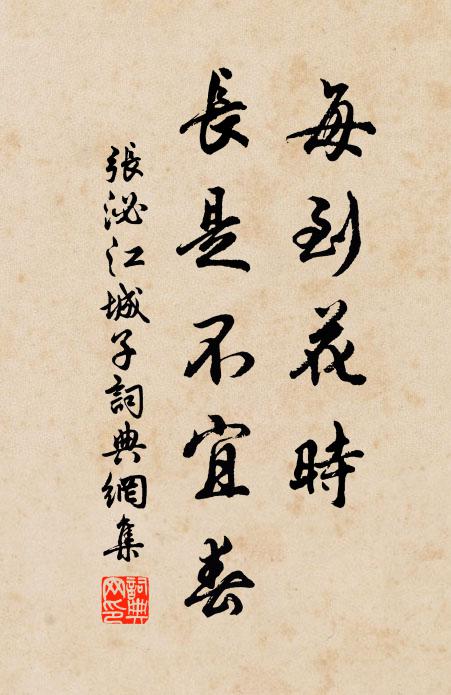 每到花時
長是不宜春
張泌江城子詞典網集
詞典網印